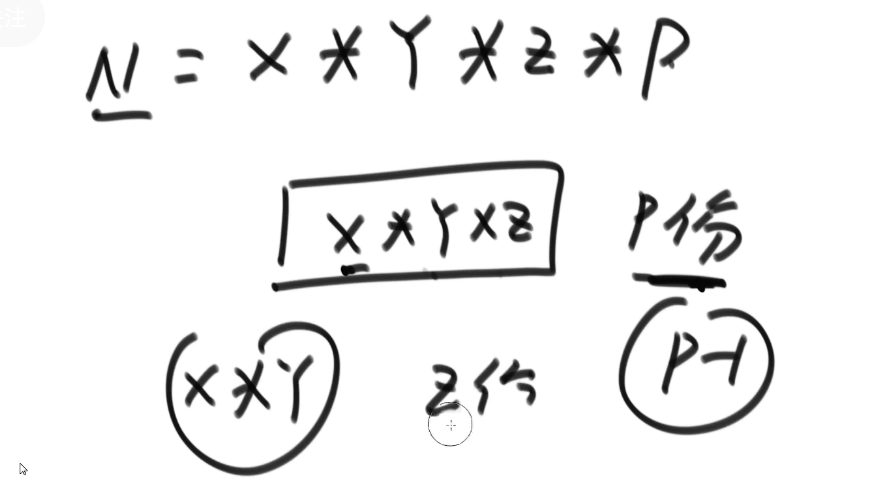 注
N = X * Y * Z * P
X * Y * Z P份
X * Y Z份 P-1